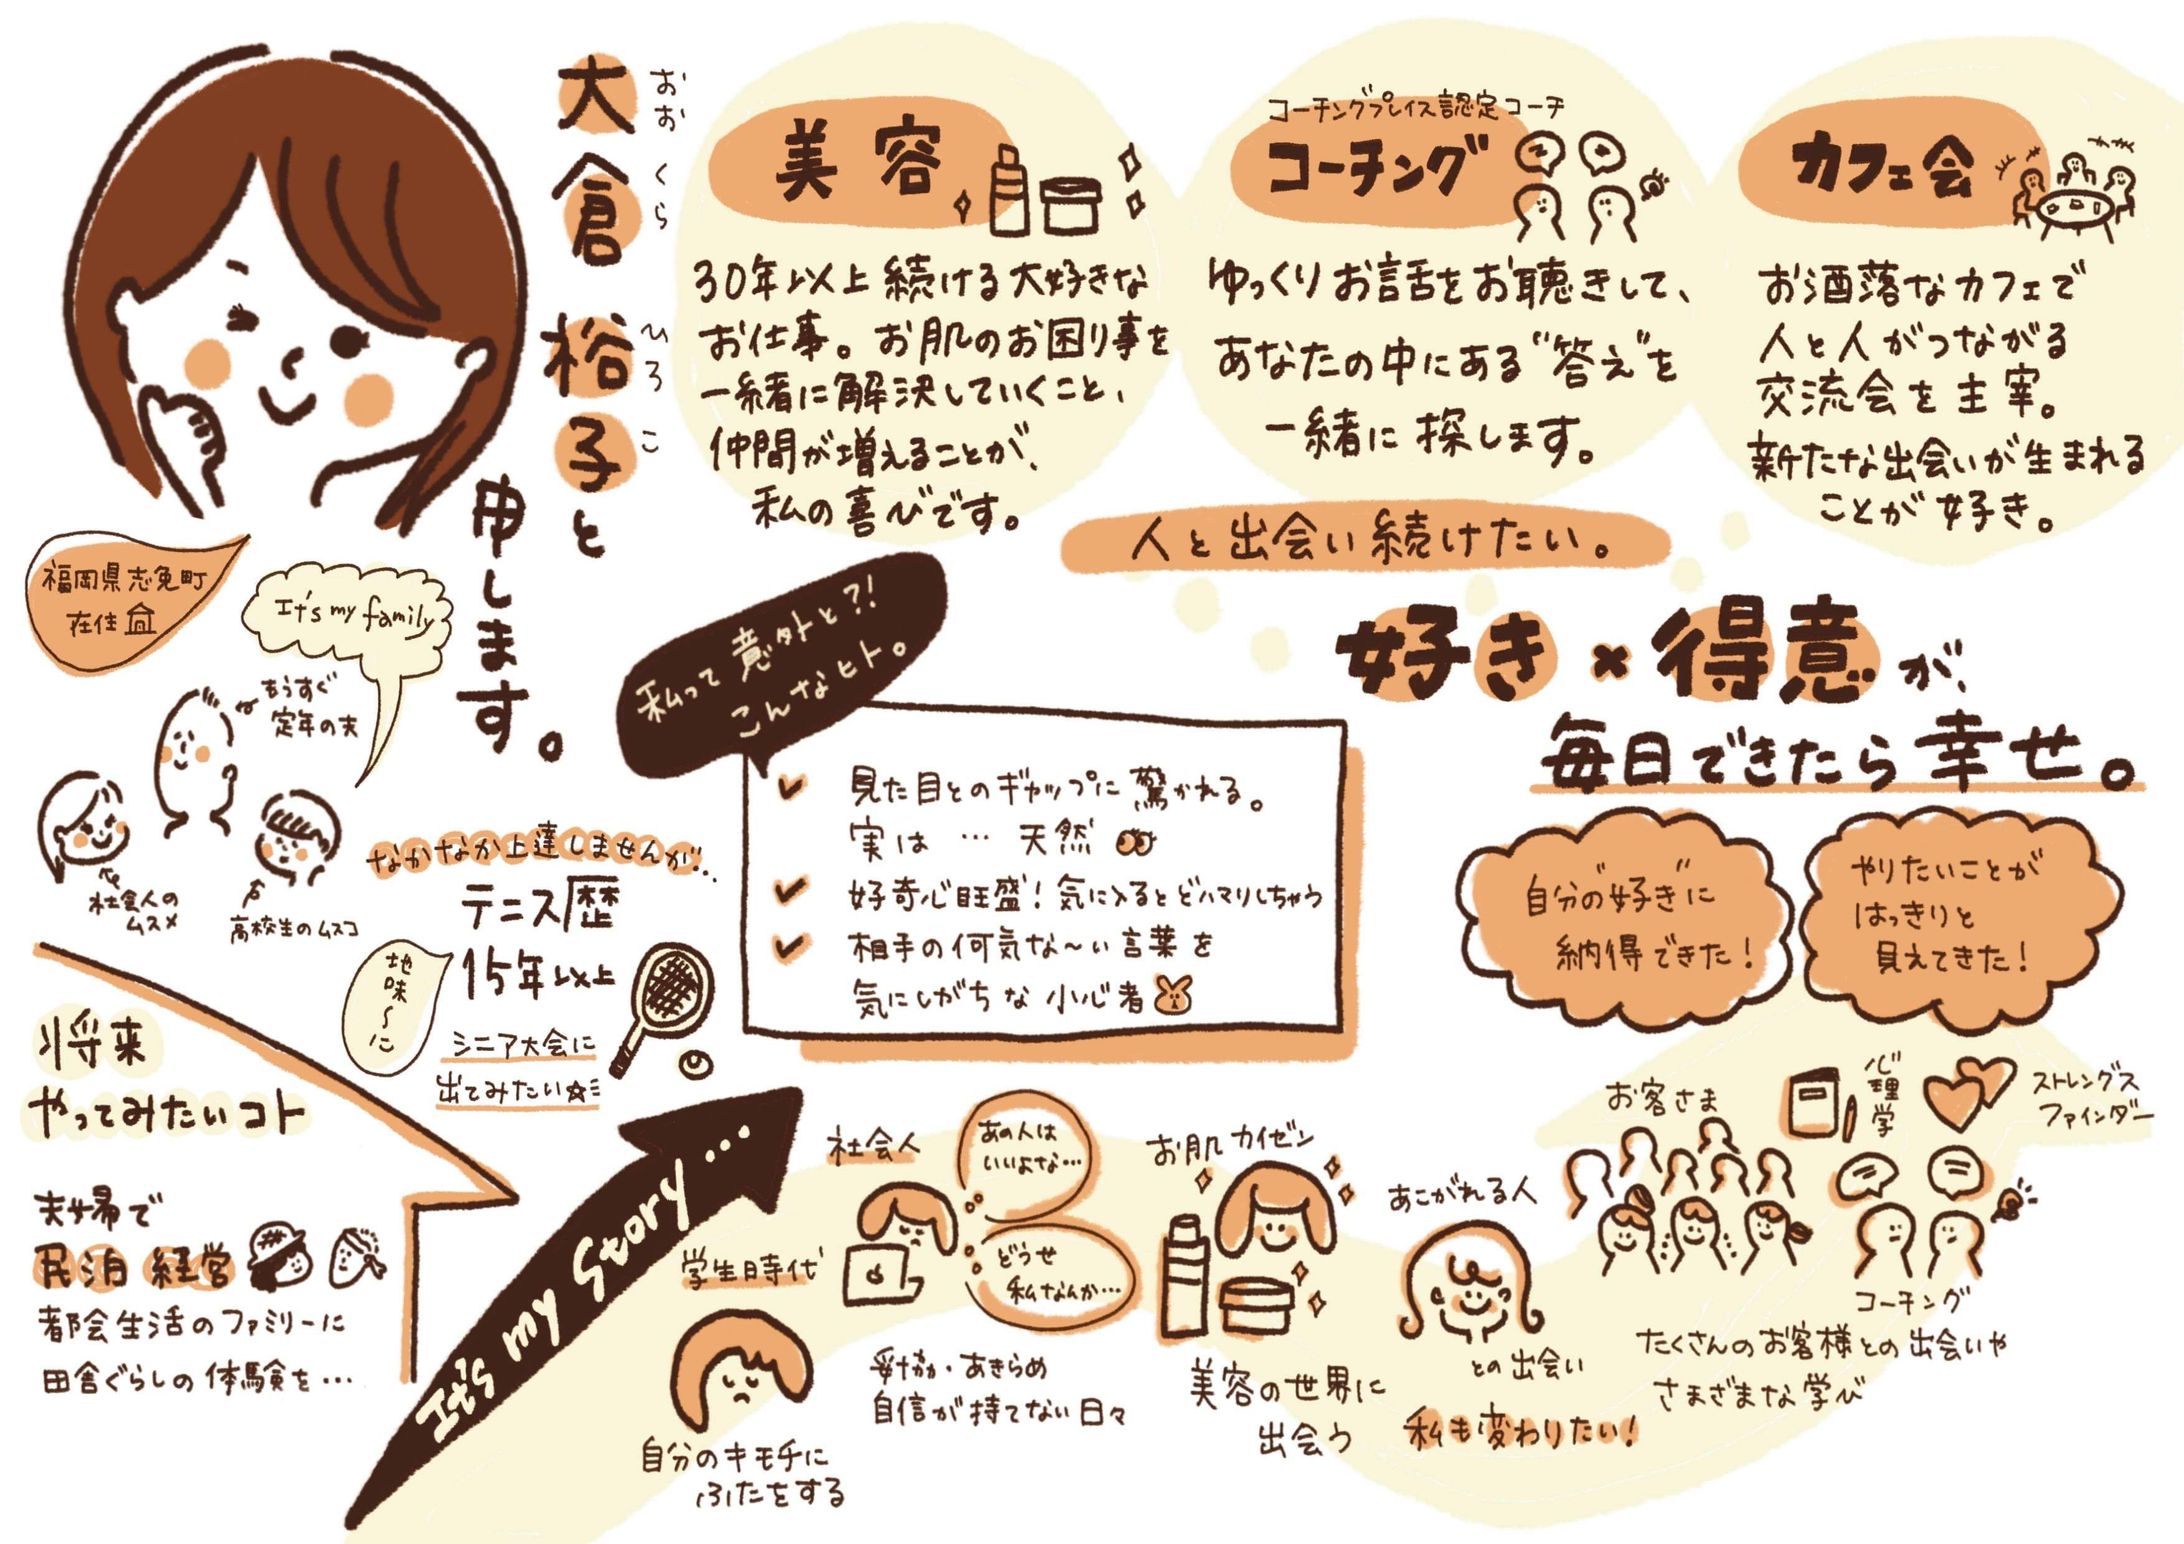 大倉裕子と
おお
くら
ひろ
こ
申します。
美容
30年以上続ける大好きな
お仕事。お肌のお困り事を
一緒に解決していくこと、
仲間が増えることが、
私の喜びです。
コーチングプレイス認定コーチ
コーチング
ゆっくりお話をお聴きして、
あなたの中にある"答え"を
一緒に探します。
カフェ会
お洒落なカフェで
人と人がつながる
交流会を主宰。
新たな出会いが生まれる
ことが好き。
人と出会い続けたい。
好き×得意が、
毎日できたら幸せ。
自分の"好き"に
納得できた!
やりたいことが
はっきりと
見えてきた!
福岡県志免町
在住
It's my family
もうすぐ
定年の夫
社会人の
ムスメ
高校生のムスコ
なかなか上達しませんが…
テニス歴
15年以上
地味〜に
シニア大会に
出てみたい☆
私って意外と?!
こんなヒト。
見た目とのギャップに驚かれる。
実は…天然
好奇心旺盛!気に入るとどハマりしちゃう
相手の何気な〜い言葉を
気にしがちな小心者
将来
やってみたいコト
夫婦で
民泊経営
都会生活のファミリーに
田舎ぐらしの体験を…
It's my Story…
学生時代
自分のキモチに
ふたをする
社会人
あの人は
いいよな…
どうせ
私なんか…
妥協・あきらめ
自信が持てない日々
お肌カイゼン
美容の世界に
出会う
あこがれる人
との出会い
私も変わりたい!
お客さま
心理学
ストレングス
ファインダー
コーチング
たくさんのお客様との出会いや
さまざまな学び